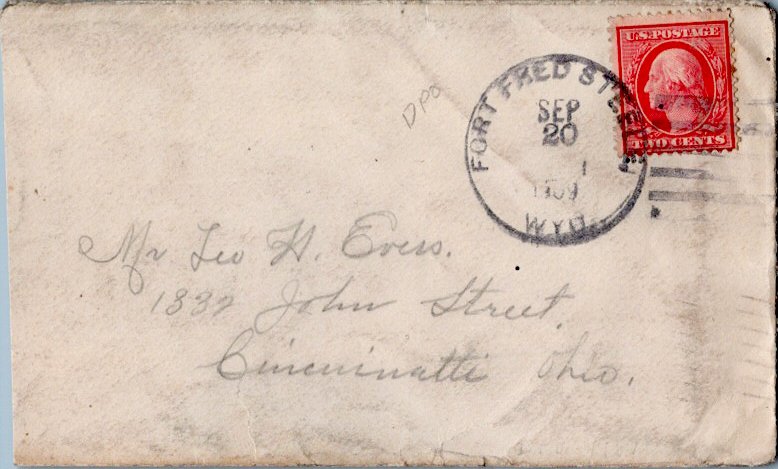 U.S. POSTAGE
TWO CENTS
FORT FRED STEELE
SEP
20
1909
WYO.
DPO
Mr Leo H. Evers.
1832 John Street,
Cincuinatti Ohio.